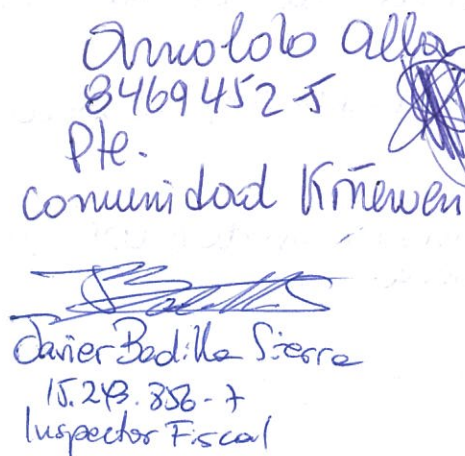 Arnoldo Alla
8469452-5
Pte.
comunidad Kiñewen
Javier Badilla Sierra
15.243.856-7
Inspector Fiscal